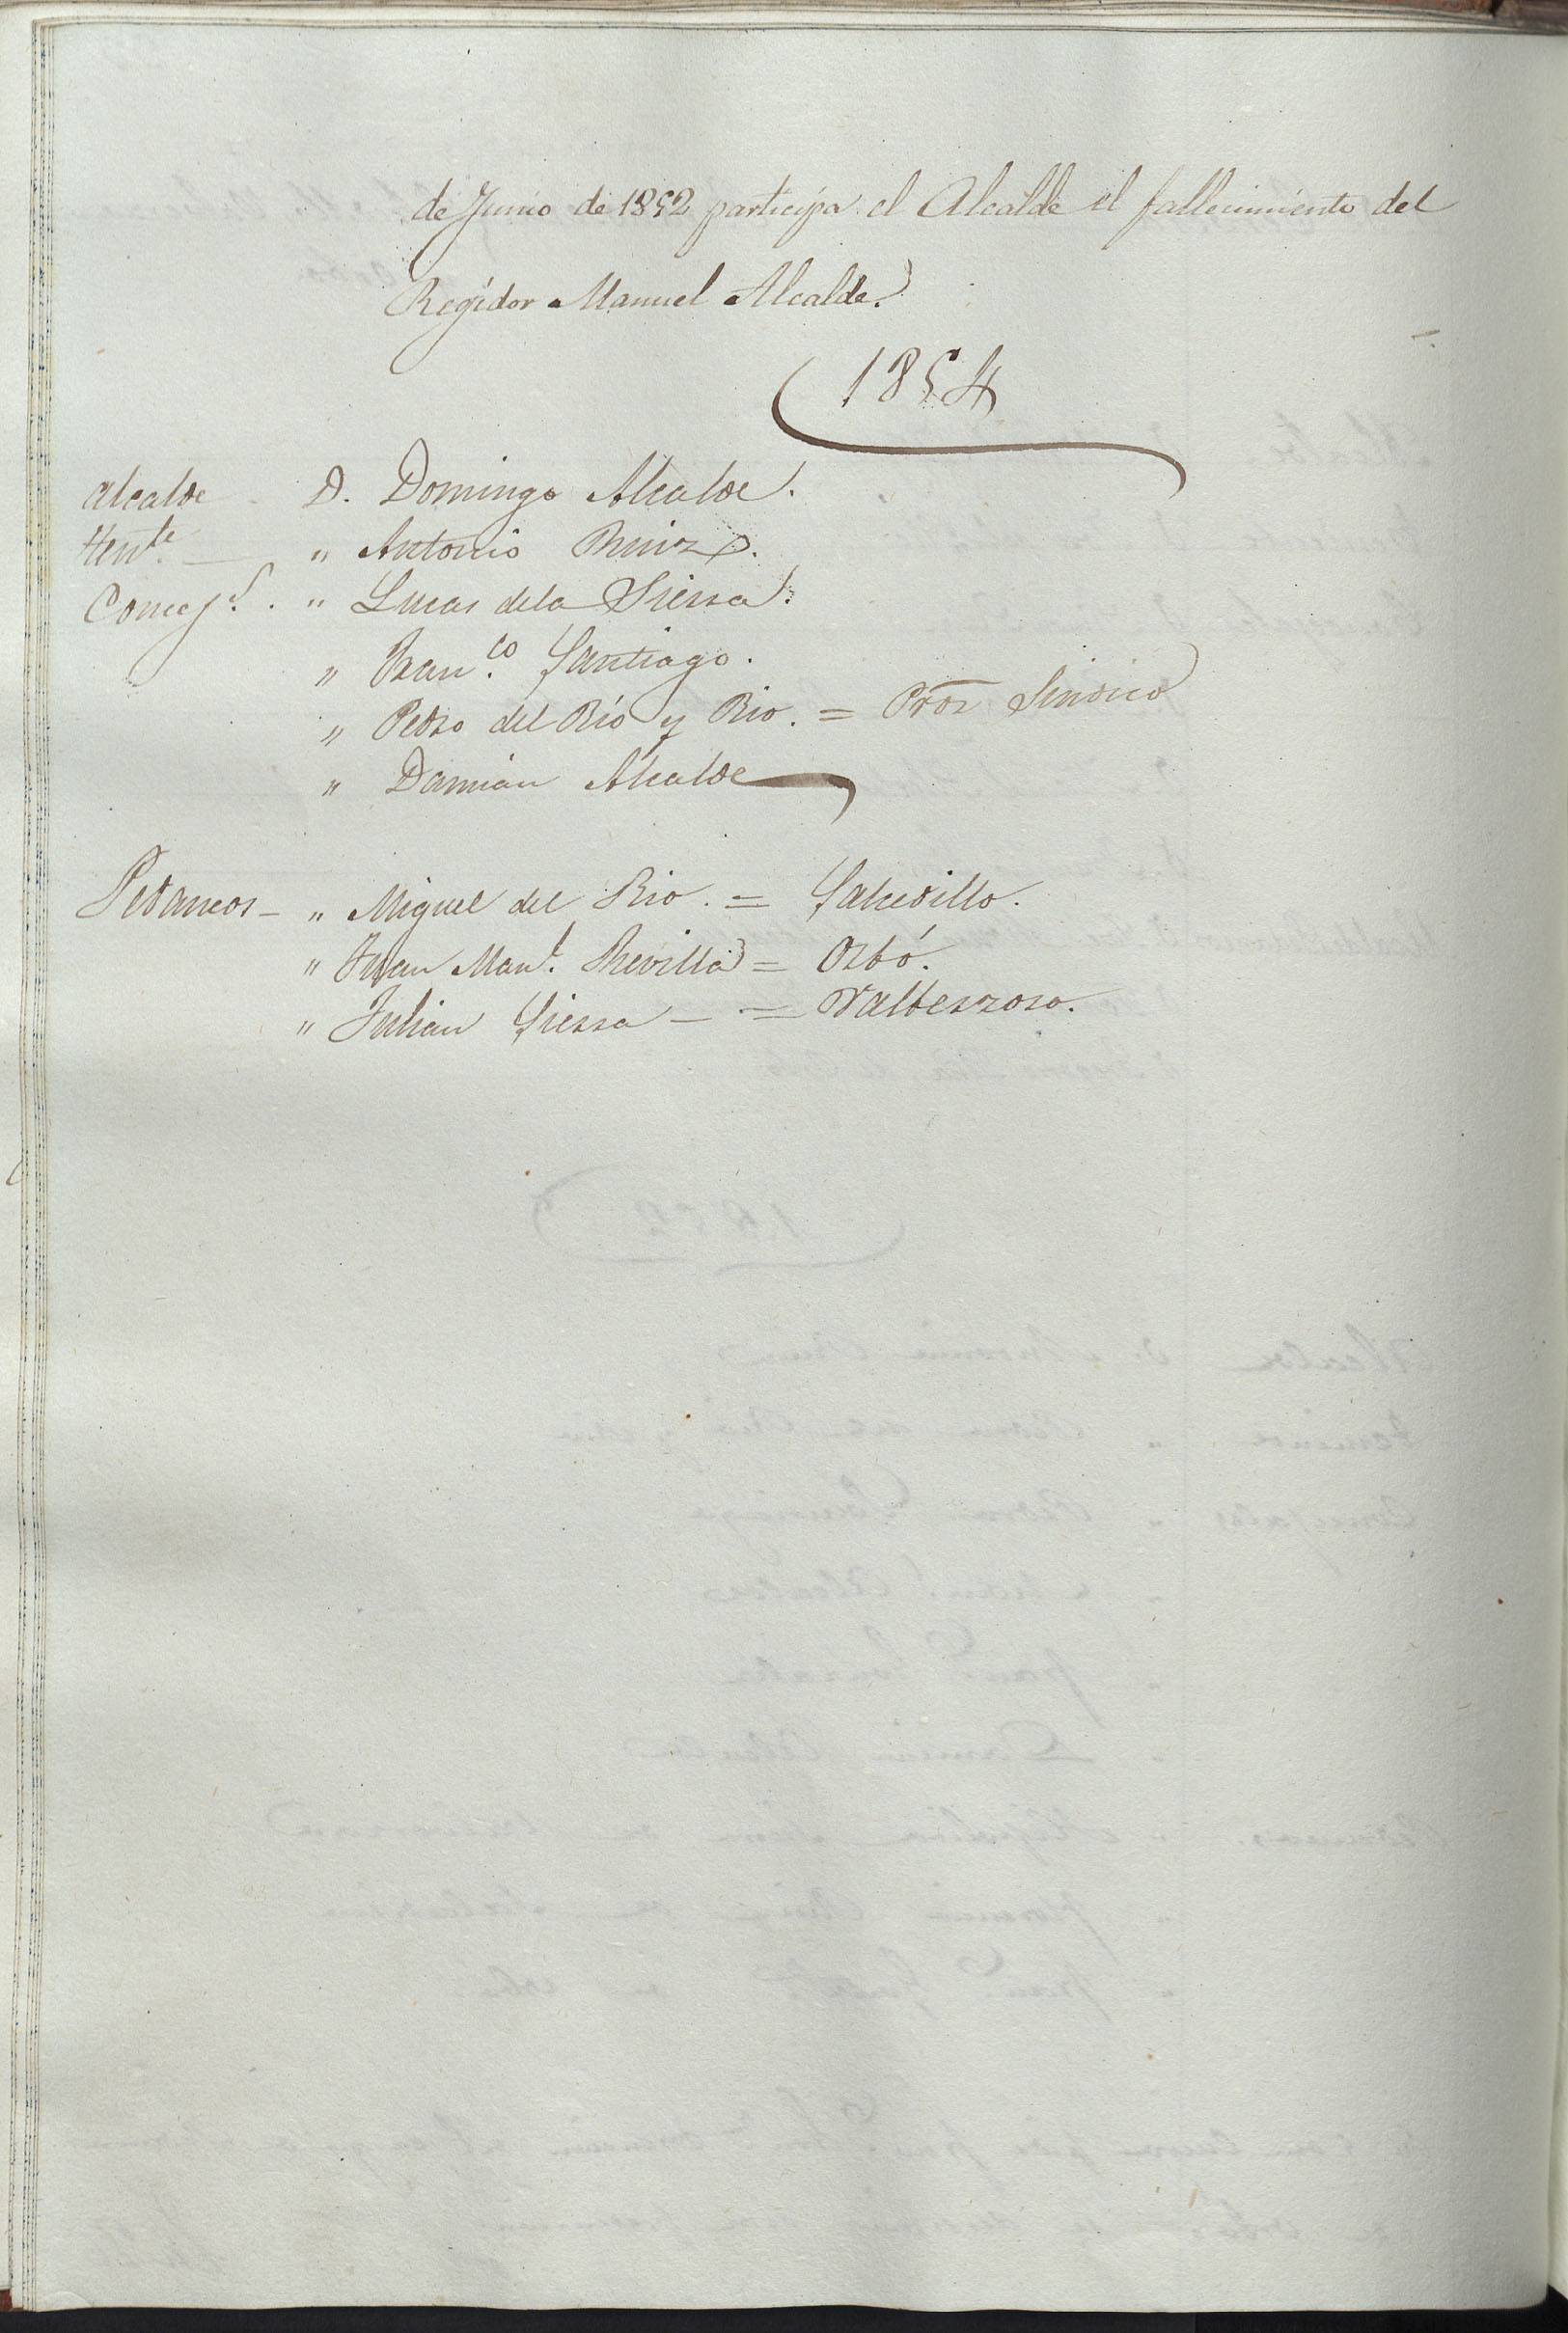 de Junio de 1852 participa el Alcalde el fallecimiento del
Regidor Manuel Alcalde.
1854
Alcalde D. Domingo Alcalde.
Ttente — " Antonio Ruiz.
Concejs. . " Lucas dela Sierra.
" Franco. Santiago.
" Pedro del Rio y Rio. = Pror Sindico
" Damian Alcalde
Pedaneos - " Miguel del Rio. = Salcedillo.
" Juan Manl. Revilla = Orbó.
" Julian Sierra - = Valberzoso.